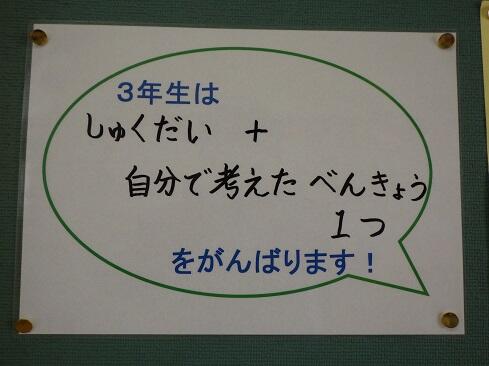 ３年生は
しゅくだい ＋
自分で考えた べんきょう
１つ
をがんばります！